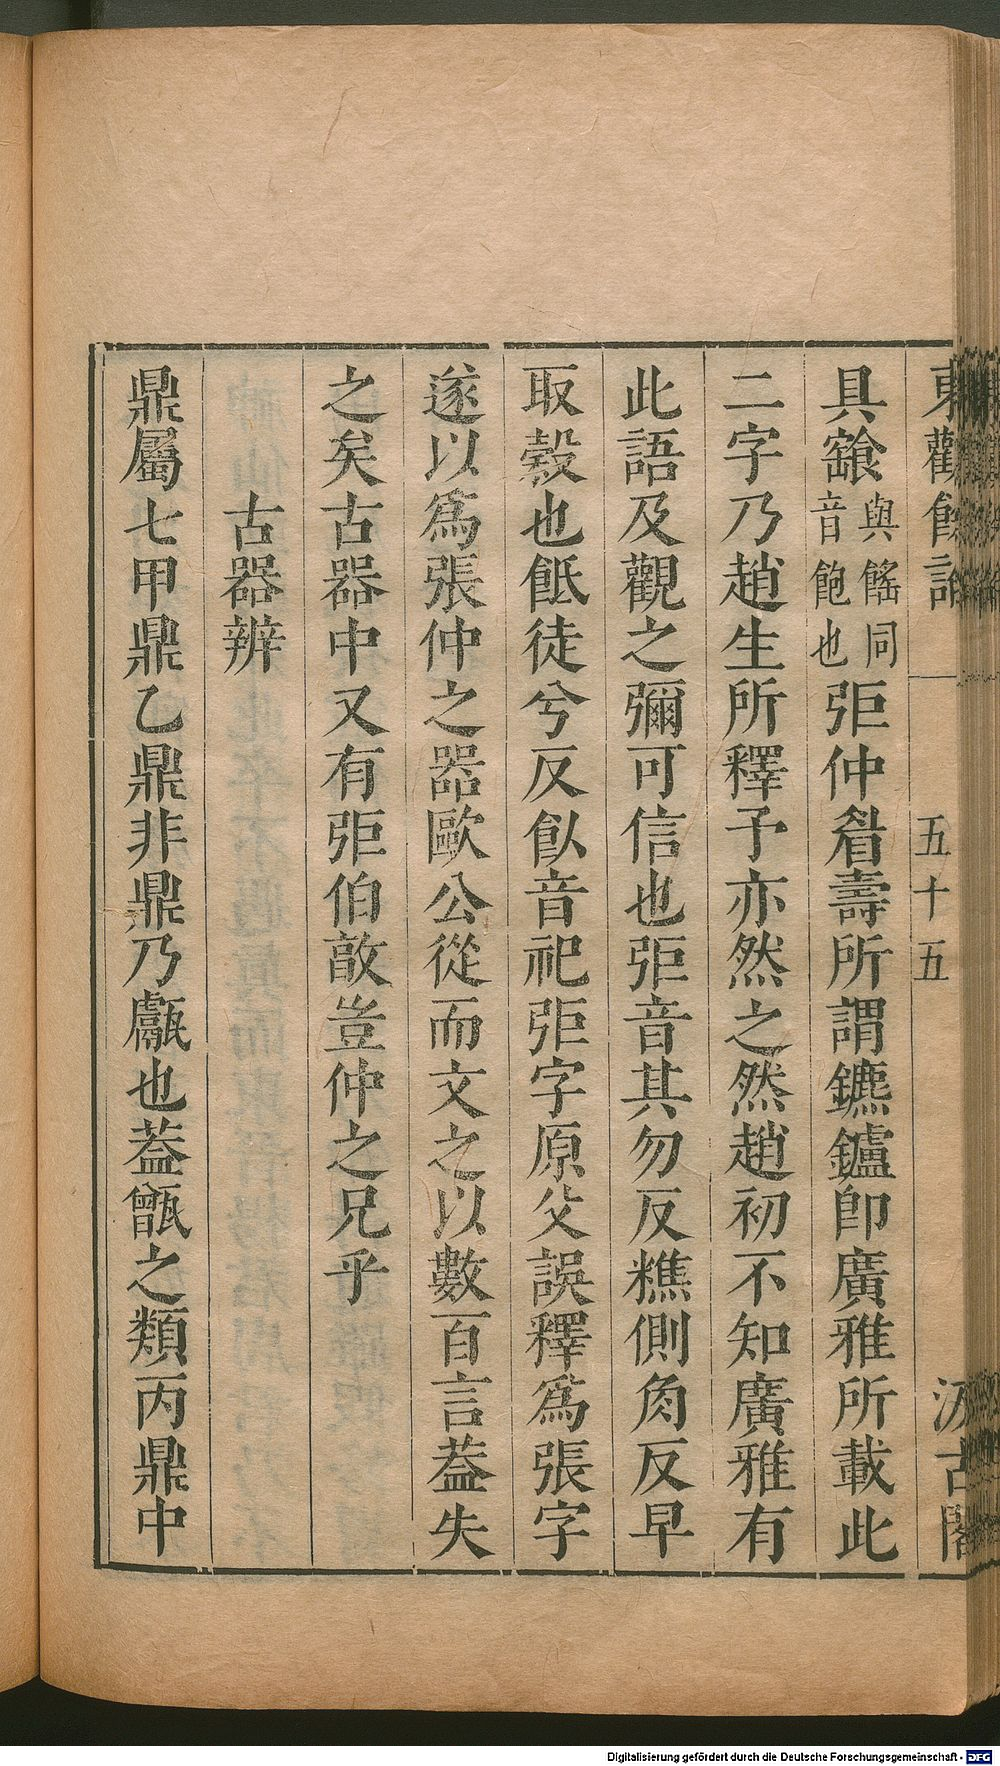 東觀餘論 五十五 汲古閣
具䭦與餚同音飽也弡仲眉壽所謂鑣鑪卽廣雅所載此
二字乃趙生所釋予亦然之然趙初不知廣雅有
此語及觀之彌可信也弡音其勿反穛側角反早
取穀也䬫徒兮反飤音祀弡字原父誤釋爲張字
遂以爲張仲之器歐公從而文之以數百言葢失
之矣古器中又有弡伯敦豈仲之兄乎
古器辨
鼎屬七甲鼎乙鼎非鼎乃甗也葢甑之類丙鼎中
Digitalisierung gefördert durch die Deutsche Forschungsgemeinschaft - DFG